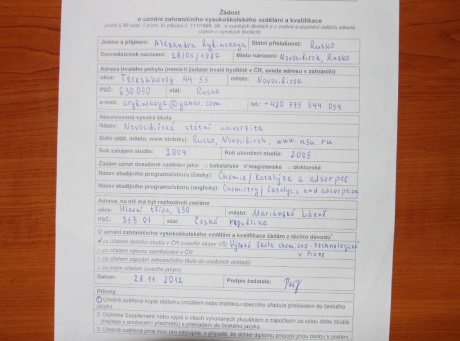 Žádost
o uznání zahraničního vysokoškolského vzdělání a kvalifikace
podle § 89 odst. 1 písm. b) zákona č. 111/1998 Sb., o vysokých školách a o změně a doplnění dalších zákonů
(zákon o vysokých školách)
Jméno a příjmení: Alexandra Rybinskaya Státní příslušnost: Rusko
Den/měsíc/rok narození: 28/05/1987 Místo narození: Novosibirsk, Rusko
Adresa trvalého pobytu (nemá-li žadatel trvalé bydliště v ČR, uvede adresu v zahraničí)
ulice: Tereshkovoy 44-55 město: Novosibirsk
PSČ: 630090 stát: Rusko
e-mail: arybinskaya@yahoo.com tel.: +420 735 944 034
Absolvovaná vysoká škola
název: Novosibirská státní univerzita
Sídlo (stát, město, www stránky): Rusko, Novosibirsk, www.nsu.ru
Rok zahájení studia: 2004 Rok ukončení studia: 2009
Žádám uznat dosažené vzdělání jako: bakalářské magisterské doktorské
Název studijního programu/oboru (česky): Chemie/Katalýza a adsorpce
Název studijního programu/oboru (anglicky): Chemistry/Catalysis and adsorption
Adresa, na niž má být rozhodnutí zasláno
ulice: Hlavní třída, 390 město: Mariánské Lázně
PSČ: 353 01 stát: Česká republika
O uznání zahraničního vysokoškolského vzdělání a kvalifikace žádám z těchto důvodů
za účelem dalšího studia v ČR (uveďte název VŠ) Vysoká škola chemicko-technologická
v Praze
za účelem výkonu zaměstnání v ČR
za účelem zapsání zahraničního titulu do osobních dokladů
za jiným účelem (uveďte jakým)
Datum: 28.11.2012 Podpis žadatele:
Přílohy
1. Úředně ověřená kopie diplomu (notářem nebo místním obecním úřadem) přeložená do českého
jazyka.
2. Diploma Supplement nebo výpis o všech vykonaných zkouškách a zápočtech za celou dobu studia